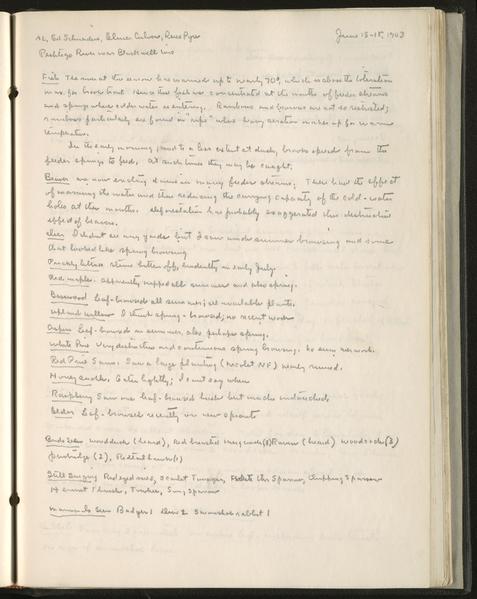 AL, Ed Schneiders, Elmer
June 15-18, 1943
Peshtigo River near Blackwell
Fish The river at this season has warmed up to nearly 70°, which is above the toleration
max. for brook trout. Hence these fish are concentrated at the mouths of feeder streams
and springs where colder water is entering. Rainbows and browns are not so restricted;
rainbows particularly are found in "rips" where heavy aeration makes up for warm
temperature.
In the early morning, and to a less extent at dusk, brooks spread from the
feeder springs to feed. At such times they may be caught.
Beaver are now erecting dams in many feeder streams. These have the effect
of warming the water and thus reducing the carrying capacity of the cold-water
holes at their mouths. has probably exaggerated this destructive
effect of beaver.
Deer I didn't see any yards but I saw midsummer browsing and some
that looked like spring browsing
Prickly lettuce stems bitten off, evidently in early July.
Red maple. apparently nipped all summer and also spring.
Basswood leaf-browsed all summer; all available plants.
Upland willow I think spring-browsed; no recent work
Aspen leaf-browsed in summer, also perhaps spring.
White Pine Very destructive and continuous spring browsing. No new work.
Red Pine Same. Saw a large planting (Nicolet NF) nearly ruined.
Honeysuckle. Eaten lightly; I can't say when
Raspberry Saw one leaf-browsed bush but much untouched
Elder Leaf-browsed recently on new sprouts
Birds Seen woodduck (heard), Red breasted merganser Raven (heard) woodcock (2)
partridge (2), Redtail hawk (1)
Still Singing Redeyed vireo, Scarlet Tanager, Sparrow, Chipping Sparrow
Hermit Thrush, Song Sparrow
Mammals Seen Badger 1 Deer 2 Snowshoe rabbit 1